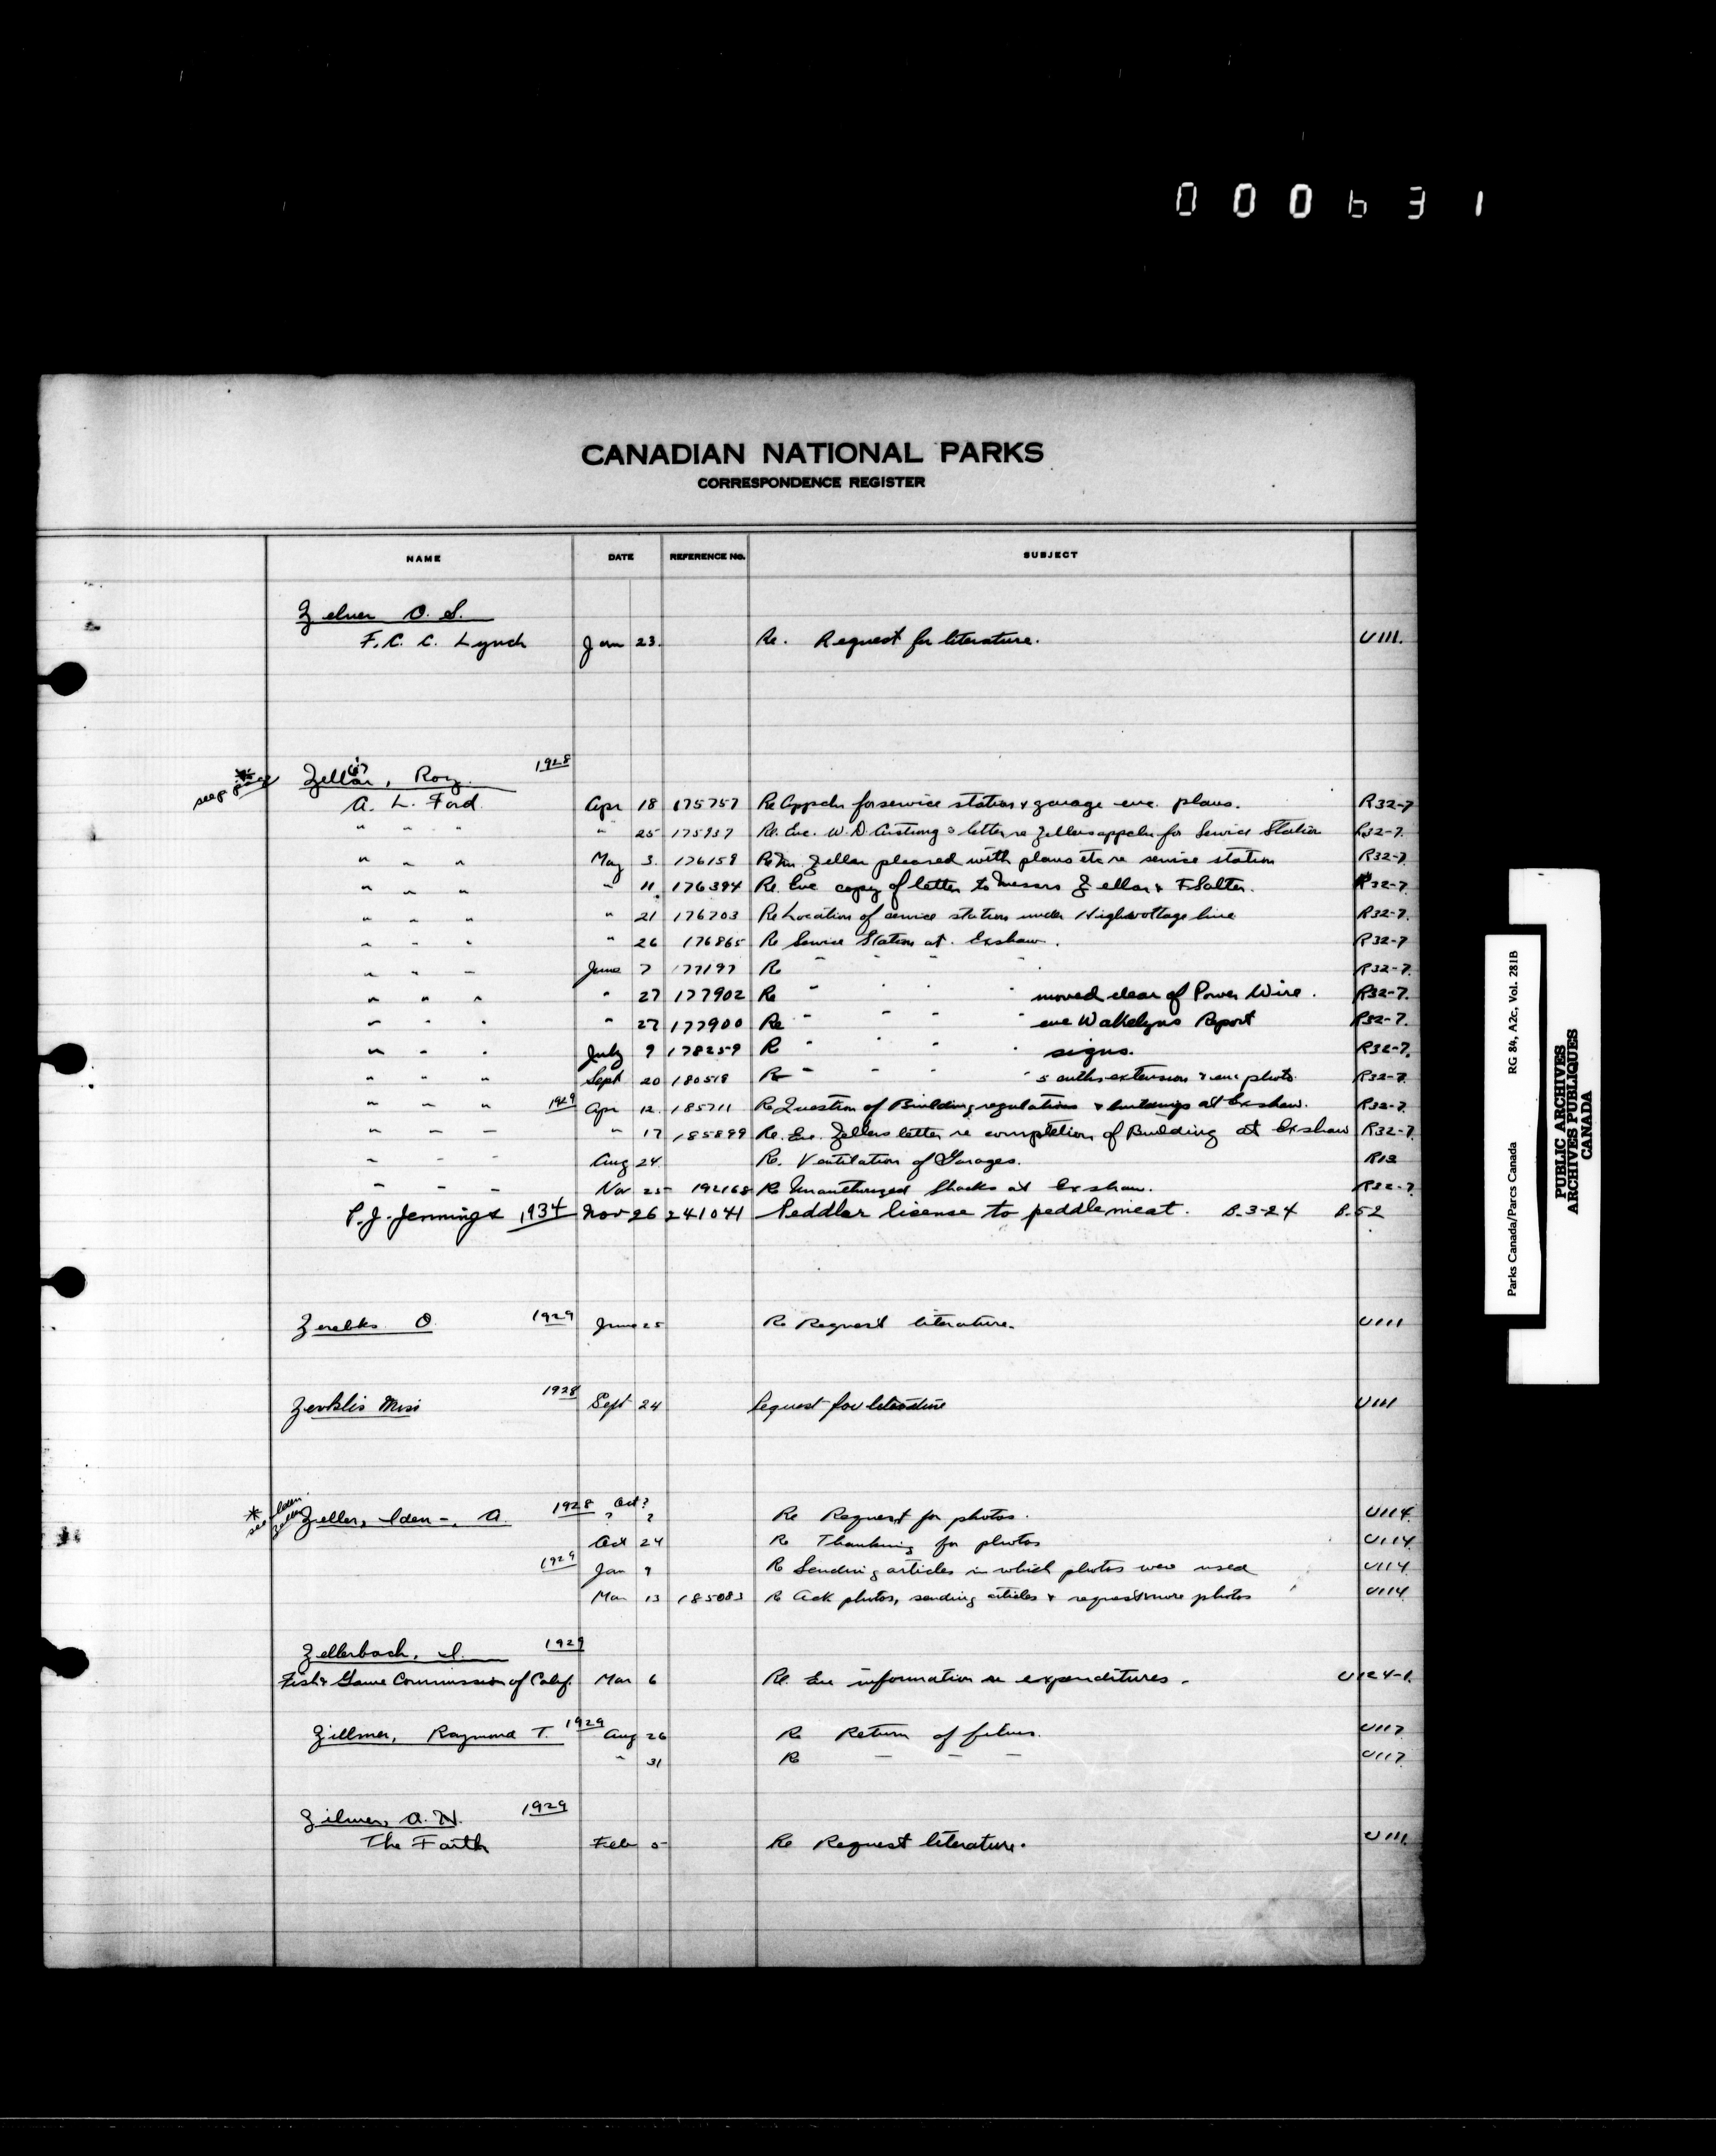 000631
CANADIAN NATIONAL PARKS
CORRESPONDENCE REGISTER
NAME DATE REFERENCE No. SUBJECT
Zelner O. S.
F. C. C. Lynch Jan 23. Re. Request for literature. U111.
see page Zellar, Roy 1928
A. L. Ford Apr 18 175757 Re Appcln for service station & garage enc. plans. R32-7
" " " " 25 175937 Re. Enc. W. D. letter re Zellers appcln for Service Station R32-7.
" " " May 3. 176159 Re Mr. Zellar pleased with plans etc re service station R32-7
" " " " 11. 176394 Re. Enc copy of letter to Messrs Zellar & F. Salter. R32-7
" " " " 21 176703 Re Location of service station under High voltage line R32-7.
" " " " 26 176865 Re Service Station at Exshaw. R32-7
" " " June 7 177197 Re " " " " R32-7.
" " " " 27 177902 Re " " " " moved clear of Power Wire. R32-7.
" " " " 27 177900 Re " " " " enc Walkelyns Report R32-7.
" " " July 9 178259 R " " " " signs. R32-7.
" " " Sept 20 180518 Re " " " " extension & enc photo. R32-7.
" " " 1929 Apr 12. 185711 Re Question of Building regulations & buildings at Exshaw. R32-7.
" " " " 17 185899 Re. Enc. Zellers letter re completion of Building at Exshaw R32-7
" " " Aug 24. Re. Ventilation of Garages. R12
" " " Nov 25 192168 Re Unauthorized Shacks at Exshaw. R32-7
P. J. Jennings 1934 Nov 26 241041 Peddler license to peddle meat. B.3-24 B.52
O 1929 June 25 Re Request literature. U111
Miss 1928 Sept 24 Request for literature U111
* see Iden Zeller Zeller, Iden -, A. 1928 Oct ? ? ? Re Request for photos. U114.
Oct 24 Re Thanking for photos U114.
1929 Jan 9 Re Sending articles in which photos were used U114.
Mar 13 185083 Re Ack photos, sending articles & request more photos U114
Zellerbach, I. 1929
Fish & Game Commission of Calif. Mar 6 Re. Enc information on expenditures. U124-1.
Zillmer, Raymond T. 1929 Aug 26 Re Return of films. U117
" 31 Re — — — U117.
Zilmer, A. N. 1929
The Faith Feb 5 Re Request literature. U111.
Parks Canada/Parcs Canada RG 84, A2c, Vol. 281B
PUBLIC ARCHIVES
ARCHIVES PUBLIQUES
CANADA